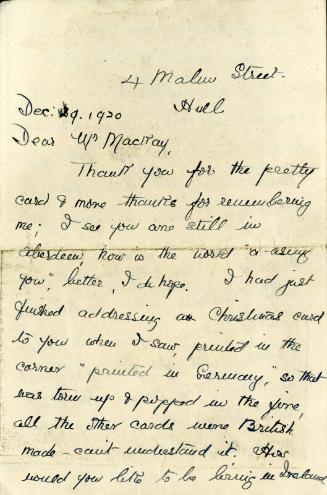 4 Malm Street.
Hull
Dec: 29. 1920
Dear Mr Mackay,
Thank you for the pretty
card & more thanks for remembering
me; I see you are still in
Aberdeen, how is the world "a-using
you", better, I do hope. I had just
finished addressing an Christmas card
to you when I saw, printed in the
corner "printed in Germany," so that
was torn up & popped in the fire,
all the other cards were British
made - can't understand it. How
would you like to be living in Ireland